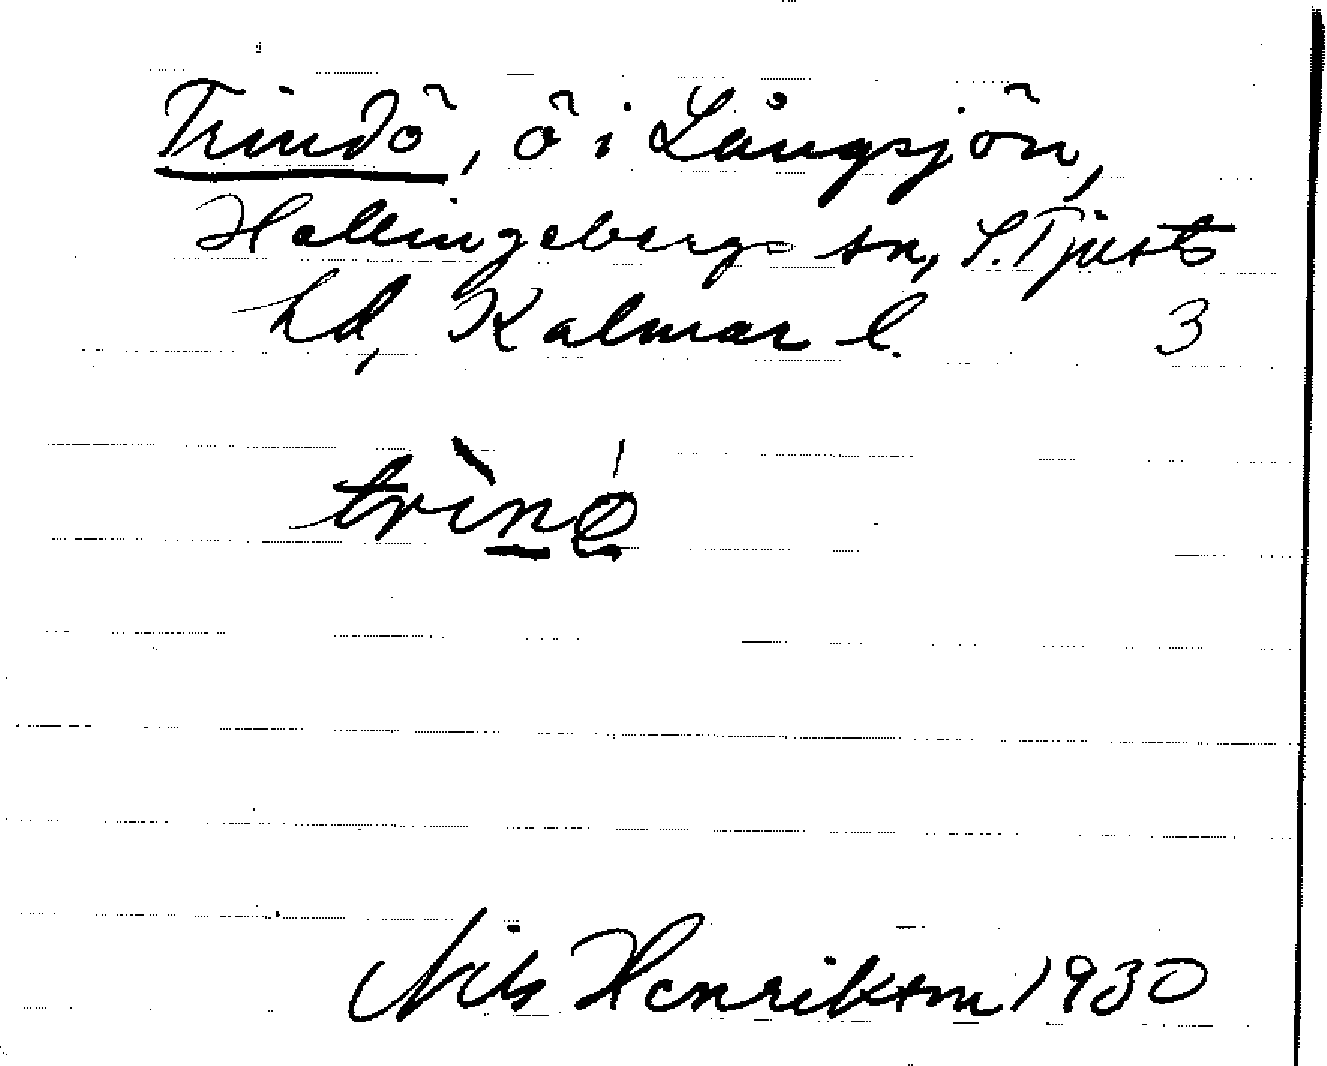 Trindö, ö i Långsjön,
Hallingebergs sn, S. Tjusts
hd, Kalmar l. 3
Nils Henrikson 1930